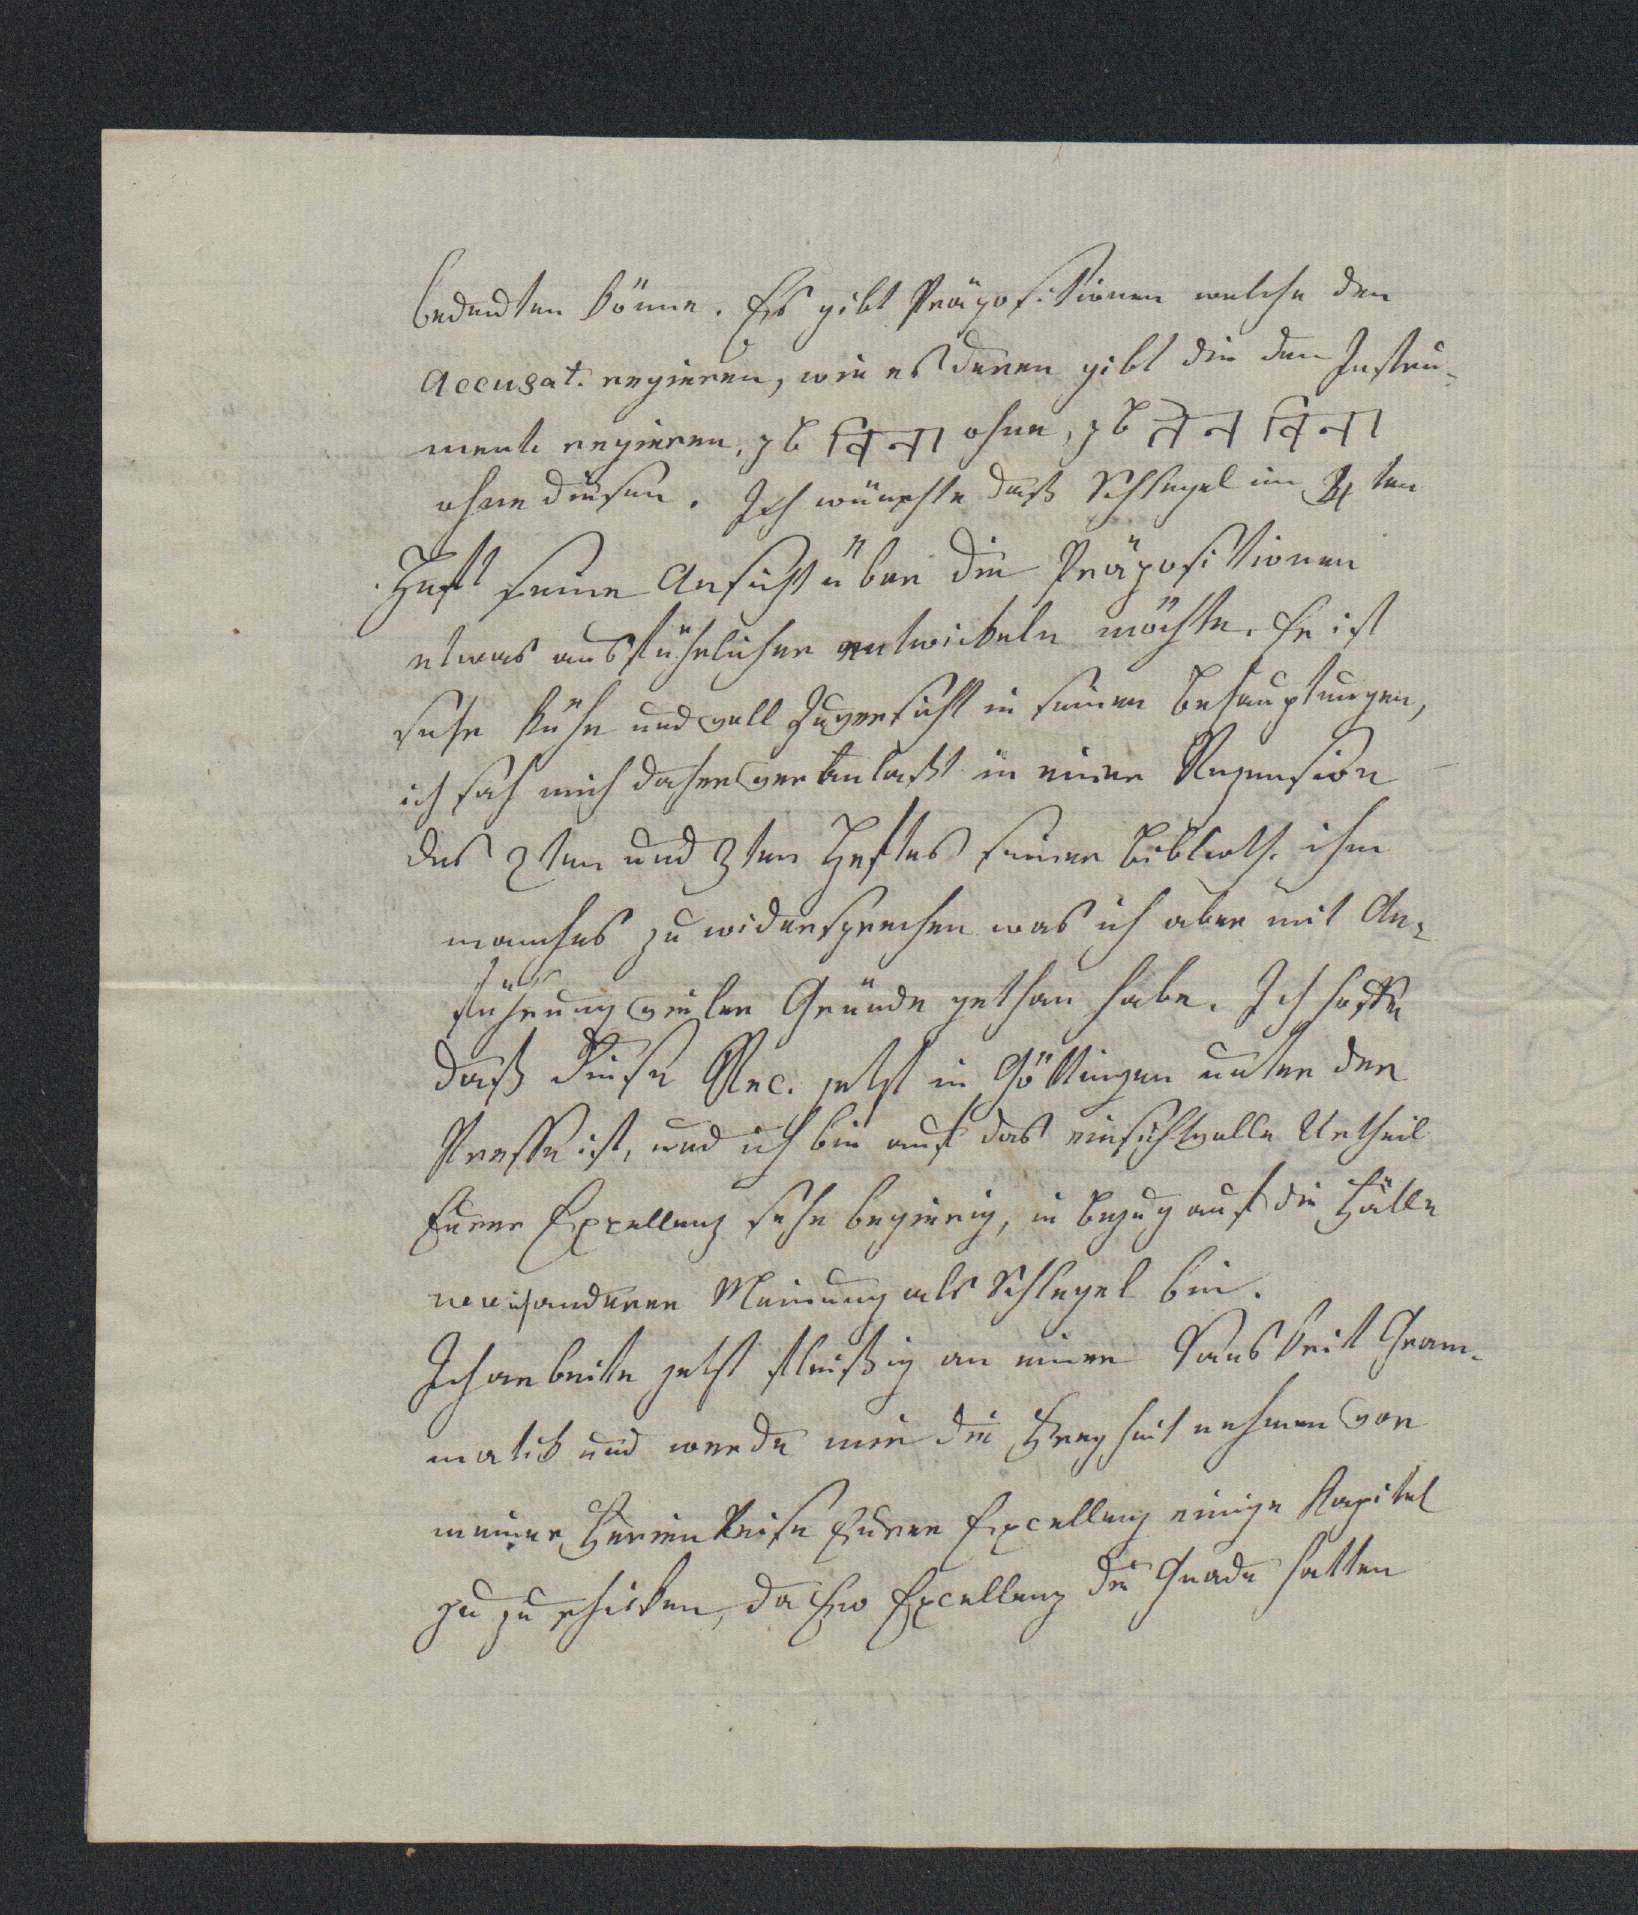 bedeuten könne. Es gibt Präpositionen welche den
Accusat. regieren, wie es deren gibt die den Instru-
ment. regieren, zb विना ohne, zb तेन विना
ohne diesen. Ich wünschte daß Schlegel im 4ten
Heft seine Ansicht über die Präpositionen
etwas ausführlicher entwickeln möchte. Er ist
sehr kühn und voll Zuversicht in seinen Behauptungen,
ich sah mich daher veranlaßt in einer Rezension
des 2ten und 3ten Heftes seiner Biblioth. ihm
manches zu widersprechen was ich aber mit An-
führung vieler Gründe gethan habe. Ich hoffe
daß diese Rec. jetzt in Göttingen unter der
Presse ist, und ich bin auf das einsichtvolle Urtheil
Eurer Excellenz sehr begierig, in Bezug auf die Fälle
wo ich anderer Meinung als Schlegel bin.
Ich arbeite jetzt fleißig an einer Sanskrit Gram-
matik und werde mir die Freyheit nehmen vor
meiner Ferienreise Eurer Excellenz einige Kapitel
zu zu schicken, da Ew Excellenz die Gnade hatten